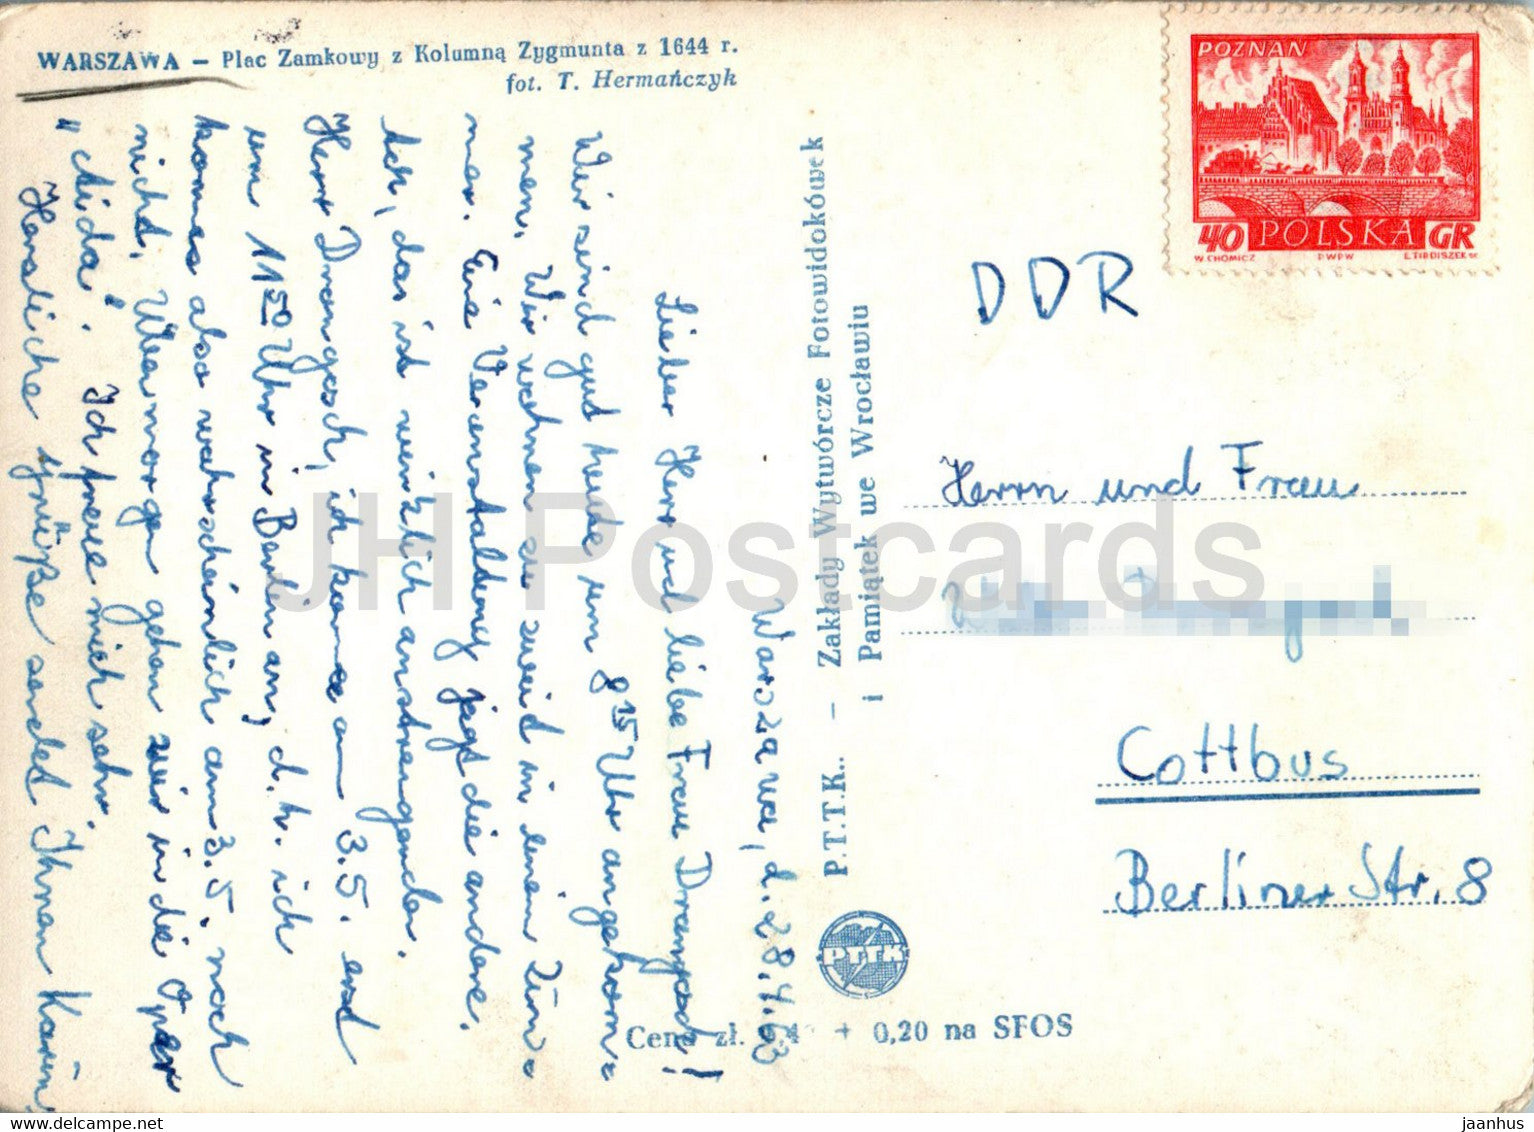 WARSZAWA – Plac Zamkowy z Kolumną Zygmunta z 1644 r.
fot. T. Hermańczyk
Warszawa, d. 28.4.63
Lieber Herr und liebe Frau
Wir sind gut heute um 8 15 Uhr angekom-
men. Wir wohnen zu zweit in einem Zim-
mer. Eine Veranstaltung jagt die andere.
Ach, das ist wirklich anstrengender.
Herr ich komme am 3.5. erst
um 11 50 Uhr in Berlin an, d.h. ich
komme also wahrscheinlich am 3.5. noch
nicht. Übermorgen gehen wir in die Oper
"Aida". Ich freue mich sehr.
Herzliche Grüße sendet Ihnen Karin
P.T.T.K.. – Zakłady Wytwórcze Fotowidokówek
i Pamiątek we Wrocławiu
PTTK
Cena zł. + 0,20 na SFOS
POZNAŃ
40 POLSKA GR
W. CHOMICZ PWPW E. TIRDISZEK SC.
DDR
Herrn und Frau
Cottbus
Berliner Str. 8
JH Postcards
www.delcampe.net
jaanhus